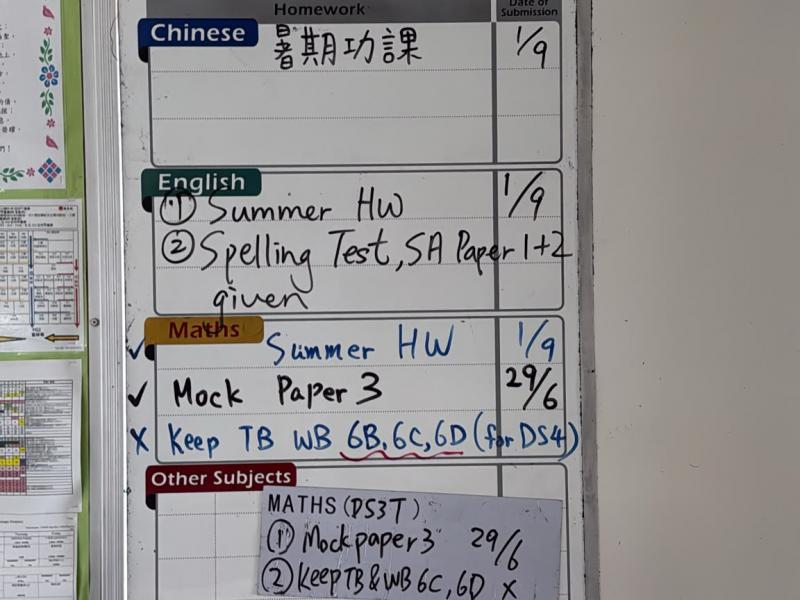 Homework
Date of
Submission
Chinese
暑期功課 1/9
English
① Summer HW 1/9
② Spelling Test, SA Paper 1+2
given
Maths
✓ Summer HW 1/9
✓ Mock Paper 3 29/6
x Keep TB WB 6B, 6C, 6D (for DS4)
Other Subjects
MATHS (DS3T)
① Mock paper 3 29/6
② Keep TB & WB 6C, 6D x